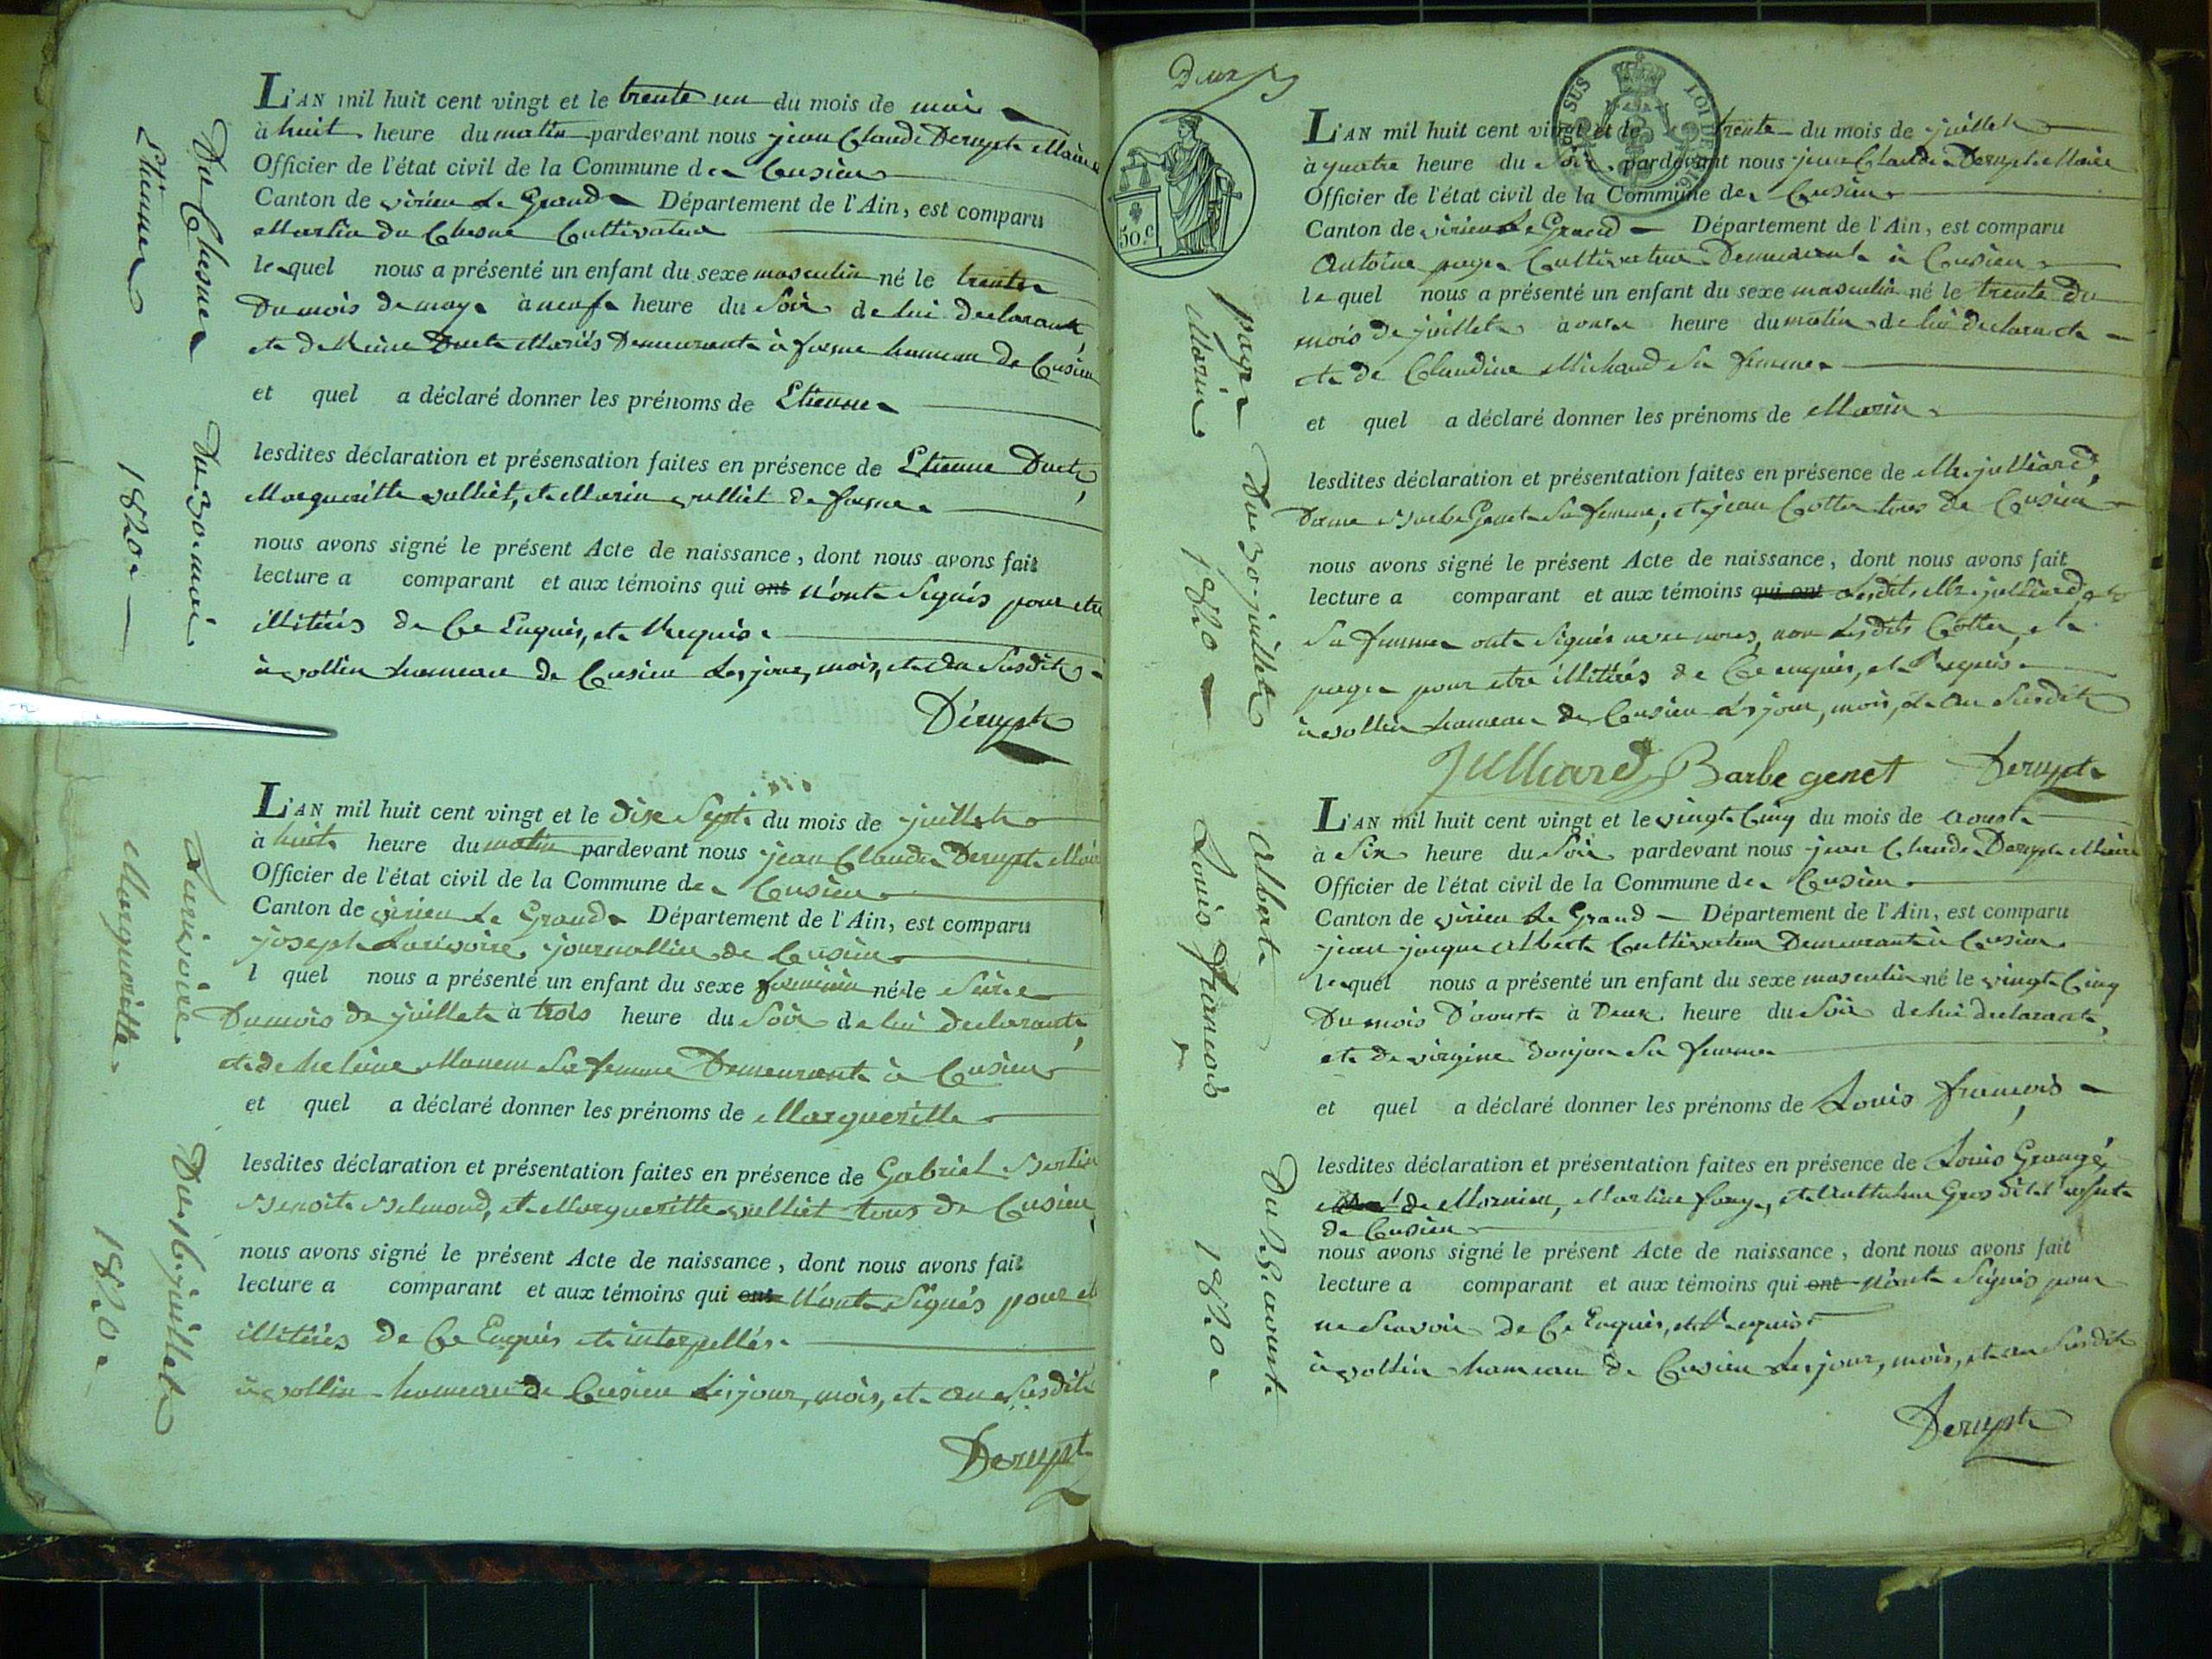 L'AN mil huit cent vingt et le trente un du mois de mai
à huit heure du matin pardevant nous jean Claude Derupt Maire
Officier de l'état civil de la Commune de Cusieu
Canton de virieu Le Grand Département de l'Ain, est comparu
Martin du Chesne Cultivateur
lequel nous a présenté un enfant du sexe masculin né le trente
Du mois de may à neuf heure du Soir de lui declarant,
et de Reine Duet Mariés Demeurant à hameau de Cusieu
et quel a déclaré donner les prénoms de Etienne
lesdites déclaration et présensation faites en présence de Etienne Duet,
Margueritte vulliet, et Marin vulliet de
nous avons signé le présent Acte de naissance, dont nous avons fait
lecture a comparant et aux témoins qui ont n'ont Signés pour etre
illitérés de Ce Enquis, et Requis
à vollin hameau de Cusieu Les jour, mois, et an Susdits
Dérupt
Du Chesne Etienne
Du 30 mai 1820
L'AN mil huit cent vingt et le dix Sept du mois de juillet
à huit heure du matin pardevant nous jean Claude Derupt Maire
Officier de l'état civil de la Commune de Cusieu
Canton de virieu Le Grand Département de l'Ain, est comparu
joseph Larivoire journallier de Cusieu
l quel nous a présenté un enfant du sexe feminin né le Seize
Du mois de juillet à trois heure du Soir de lui declarant,
et de helene Sa femme Demeurant à Cusieu
et quel a déclaré donner les prénoms de Margueritte
lesdites déclaration et présentation faites en présence de Gabriel Berlin
Benoit Belmond, et Margueritte vulliet tous de Cusieu
nous avons signé le présent Acte de naissance, dont nous avons fait
lecture a comparant et aux témoins qui ont N'ont Signés pour et
illitérés de Ce Enquis et interpellés
à vollin hameau de Cusieu Les jour, mois, et an Susdit
Derupt
Larivoire Margueritte
Du 16 juillet 1820
Deux
SUS LOI DE 1816
50. c
L'AN mil huit cent vingt et le trente du mois de juillet
à quatre heure du Soir pardevant nous jean Claude Derupt Maire
Officier de l'état civil de la Commune de Cusieu
Canton de virieu Le Grand Département de l'Ain, est comparu
Antoine page Cultivateur Demeurant à Cusieu
le quel nous a présenté un enfant du sexe masculin né le trente Du
mois de juillet à onze heure du matin de lui declarant
et de Claudine Michaud Sa femme
et quel a déclaré donner les prénoms de Marin
lesdites déclaration et présentation faites en présence de Mr julliard,
Dame Barbe Genet Sa femme, et jean Cottet tous de Cusieu
nous avons signé le présent Acte de naissance, dont nous avons fait
lecture a comparant et aux témoins qui ont Lesdits Mr julliard et
Sa femme ont Signés avec nous, non Lesdits Cottet, et
page pour etre illitérés de Ce enquis, et Requis
à vollin hameau de Cusieu Les jour, mois, et an Susdit
Julliard Barbe genet Derupt
page Marin
Du 30 juillet 1820
L'AN mil huit cent vingt et le vingt Cinq du mois de aoust
à Six heure du Soir pardevant nous jean Claude Derupt Maire
Officier de l'état civil de la Commune de Cusieu
Canton de virieu Le Grand Département de l'Ain, est comparu
jean jacque albert Cultivateur Demeurant à Cusieu
lequel nous a présenté un enfant du sexe masculin né le vingt Cinq
Du mois D'aoust à Deux heure du Soir de lui declarant,
et de virginie donjon Sa femme
et quel a déclaré donner les prénoms de Louis françois
lesdites déclaration et présentation faites en présence de Louis Grangé,
de Mornieu, Martine et Gros dit
de Cusieu
nous avons signé le présent Acte de naissance, dont nous avons fait
lecture a comparant et aux témoins qui ont n'ont Signés pour
ne Scavoir de Ce Enquis, et Requis
à vollin hameau de Cusieu Les jour, mois, et an Susdit
Derupt
albert Louis françois
Du 25 aoust 1820